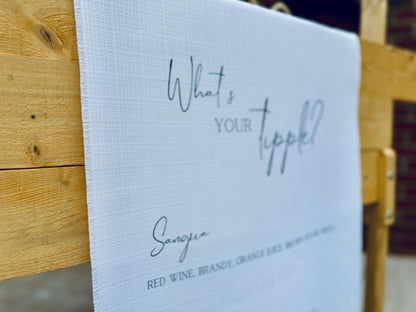 What's
YOUR tipple?
Sangria
RED WINE, BRANDY, ORANGE JUICE, BROWN SUGAR